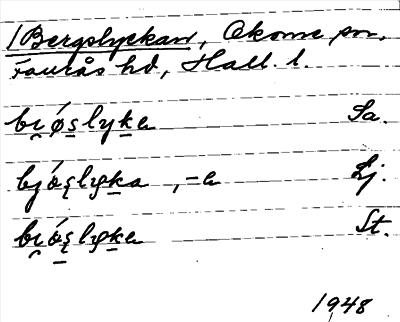 /Bergslyckan, Okome sn.
Faurås hd, Hall. l.
bi̯ǿs̠lyk̠e Sa.
bjǿs̨lyk̠a, -e Lj.
bi̯ǿs̨lyk̠e St.
1948